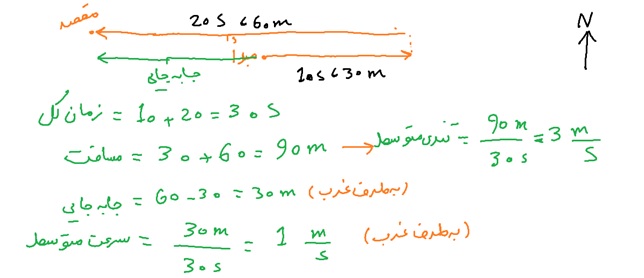 مقصد 20s، 60m N
مبدا
جابه‌جایی 10s، 30m
زمان کل = 10 + 20 = 30s
مسافت = 30 + 60 = 90m → تندی متوسط = 90m / 30s = 3 m/s
جابه‌جایی = 60 - 30 = 30m (به طرف غرب)
سرعت متوسط = 30m / 30s = 1 m/s (به طرف غرب)